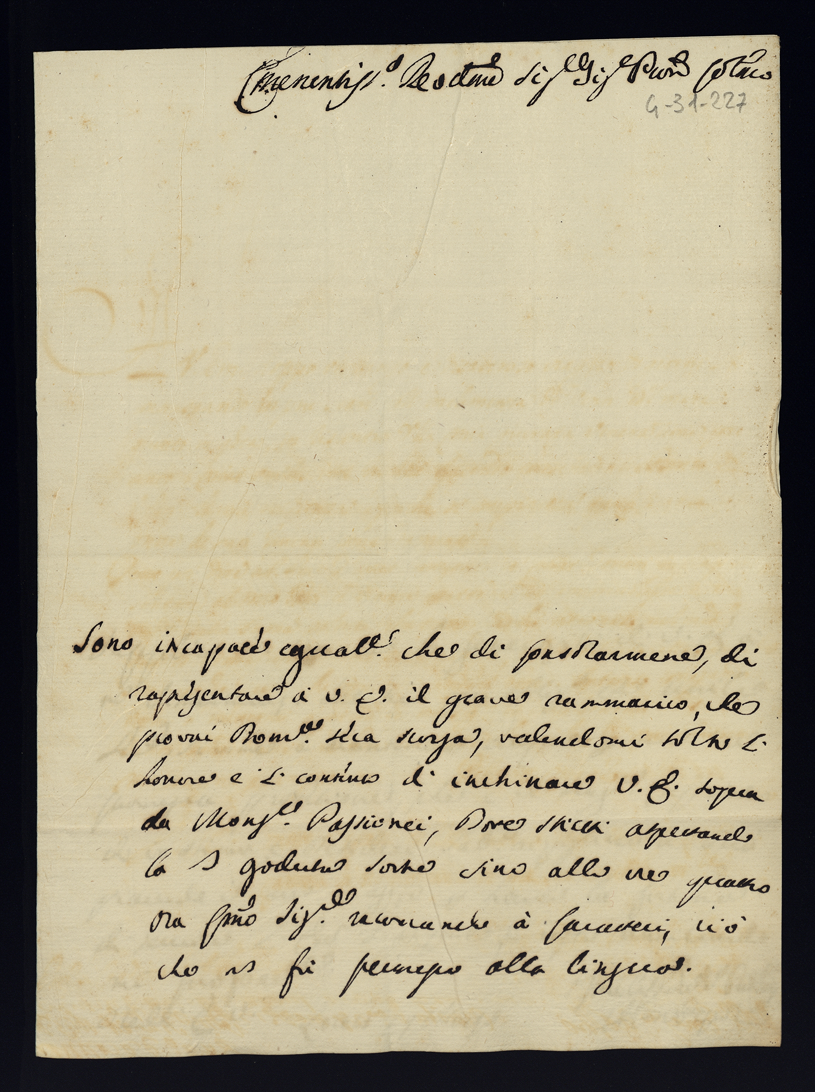 Eminentiss.o Re Sig.r Sig.r Pron Col.mo
G-31-227
Sono incapace egualm.te che di consolarmene, di
rapresentare à V. E. il grave rammarico, che
provai Dom.ca scorsa, vedendomi tolto l'
honore e il contento di inchinare V. E. sopra
da Mons.r Passionei, Dove stetti aspettando
la goduta sorte sino alle tre quattro
ora Em̃o Sig.re à caratteri, ciò
che non fù permesso alla lingua.